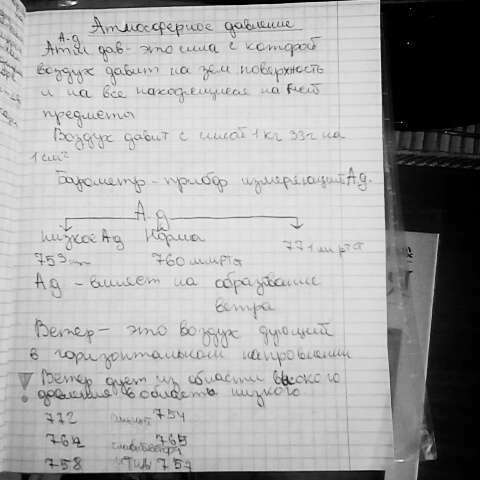 Атмосферное давление
А.д
Атм дав - это сила с которой
воздух давит на зем поверхность
и на все находящиеся на ней
предметы
Воздух давит с силой 1 кг 33г на
1 см²
Барометр - прибор измеряющий Ад.
А д
низкое Ад Норма
753 760 мм рт с 771 мм рт с
Ад - влияет на образвание
ветра
Ветер - это воздух дующий
в горизонтальном напровлении
Ветер дует из области высокого
давления в область низкого
772 754
764 765
758 757